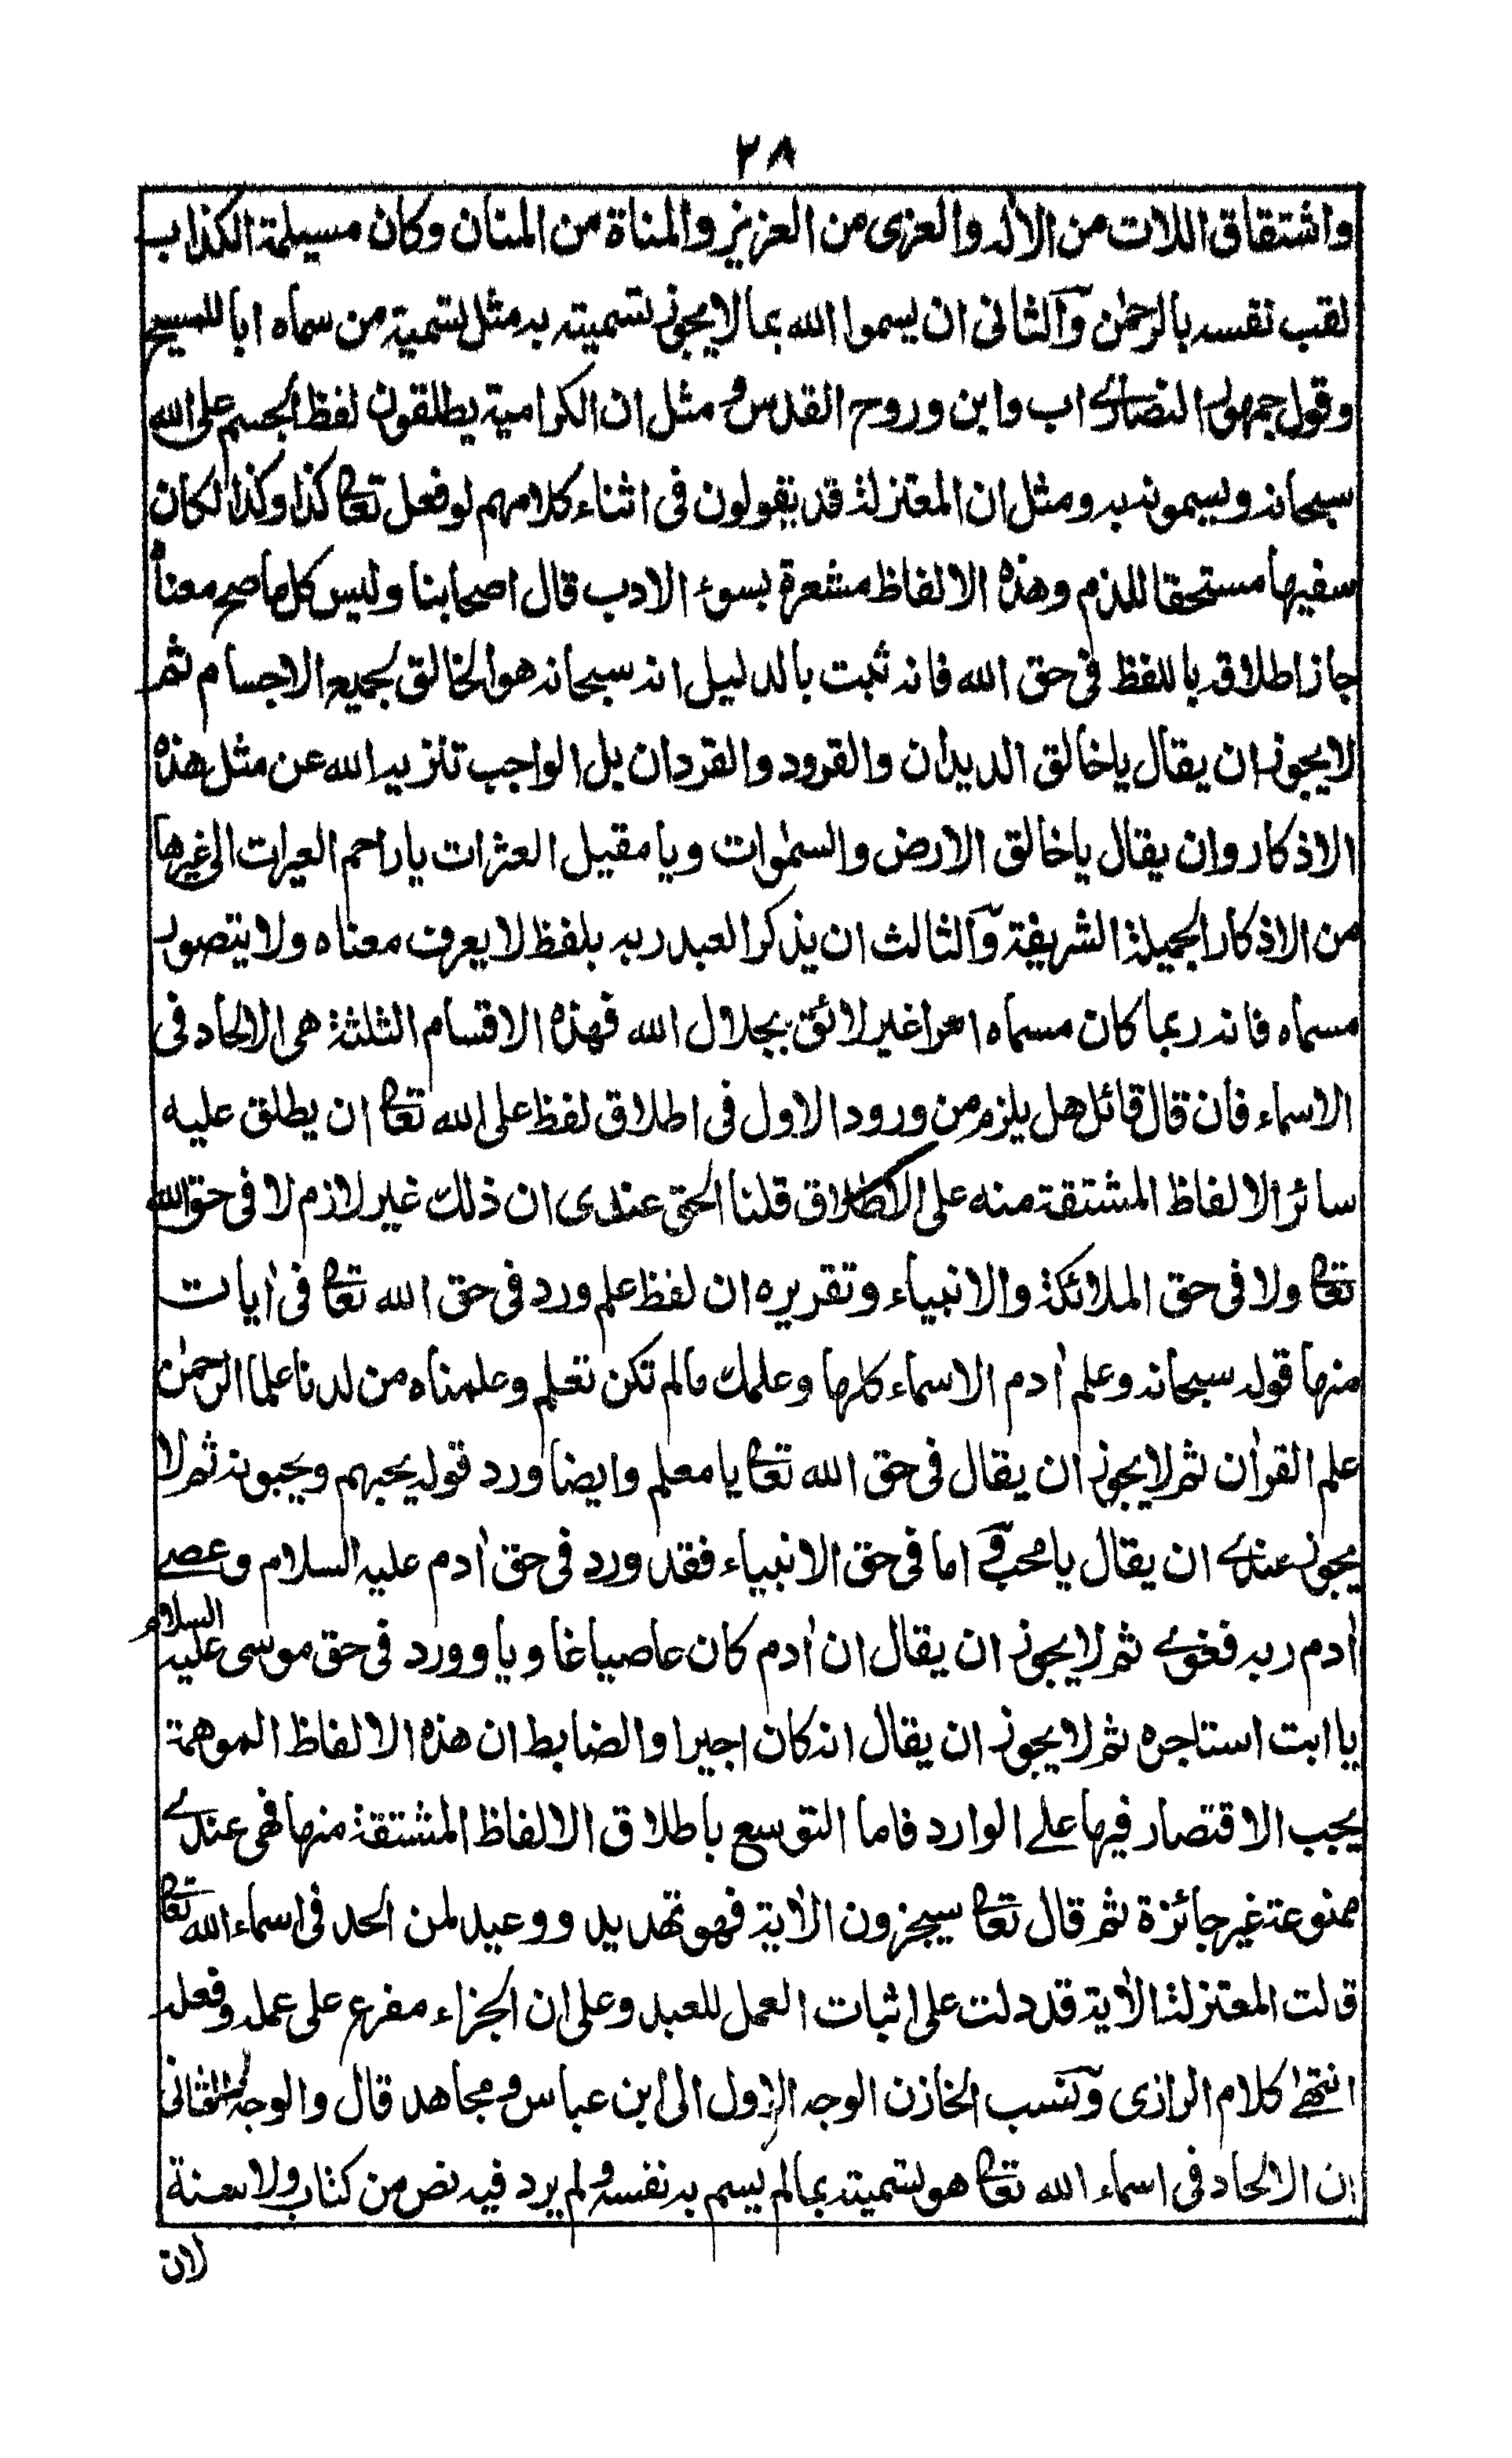 ٢٨
واشتقاق اللات من الاله والعزى من العزيز والمناة من المنان وكان مسيلمة الكذاب
لقب نفسه بالرحمٰن والثانى ان يسموا الله بما لا يجوز تسميته به مثل تسمية من سماه ابا للمسيح
وقول جمهور النصارى اب وابن وروح القدس ومثل ان الكرامية يطلقون لفظ الجسم على الله
سبحانه ويسمونه به ومثل ان المعتزلة قد يقولون فى اثناء كلامهم لو فعل تعالى كذا وكذا لكان
سفيها مستحقا للذم وهذه الالفاظ مشعرة بسوء الادب قال اصحابنا وليس كل ما صح معناه
جاز اطلاقه باللفظ فى حق الله فانه ثبت بالدليل انه سبحانه هو الخالق لجميع الاجسام ثم
لا يجوز ان يقال يا خالق الديدان والقرود والقردان بل الواجب تنزيه الله عن مثل هذه
الاذكار وان يقال يا خالق الارض والسمٰوات ويا مقيل العثرات يا راحم العبرات الى غيرها
من الاذكار الجميلة الشريفة والثالث ان يذكر العبد ربه بلفظ لا يعرف معناه ولا يتصور
مسماه فانه ربما كان مسماه امرا غير لائق بجلال الله فهذه الاقسام الثلثة هى الالحاد فى
الاسماء فان قال قائل هل يلزم من ورود الاول فى اطلاق لفظ على الله تعالى ان يطلق عليه
سائر الالفاظ المشتقة منه على الاطلاق قلنا الحق عندى ان ذلك غير لازم لا فى حق الله
تعالى ولا فى حق الملائكة والانبياء وتقريره ان لفظ علم ورد فى حق الله تعالى فى اٰيات
منها قوله سبحانه وعلم اٰدم الاسماء كلها وعلمك مالم تكن تعلم وعلمناه من لدنا علما الرحمٰن
علم القراٰن ثم لا يجوز ان يقال فى حق الله تعالى يا معلم وايضا ورد قوله يحبهم ويحبونه ثم لا
يجوز عندى ان يقال يا محب اما فى حق الانبياء فقد ورد فى حق اٰدم عليه السلام وعصى
اٰدم ربه فغوى ثم لا يجوز ان يقال ان اٰدم كان عاصيا غاويا وورد فى حق موسى عليه السلام
يا ابت استاجره ثم لا يجوز ان يقال انه كان اجيرا والضابط ان هذه الالفاظ الموهمة
يجب الاقتصار فيها على الوارد فاما التوسع باطلاق الالفاظ المشتقة منها فهى عندى
ممنوعة غير جائزة ثم قال تعالى سيجزون الاٰية فهو تهديد ووعيد لمن الحد فى اسماء الله تعالى
قالت المعتزلة الاٰية قد دلت على اثبات العمل للعبد وعلى ان الجزاء مفرع على عمله وفعله
انتهى كلام الرازى ونسب الخازن الوجه الاول الى ابن عباس ومجاهد قال والوجه الثانى
ان الالحاد فى اسماء الله تعالى هو تسميته بما لم يسم به نفسه ولم يرد فيه نص من كتاب ولا سنة
لان